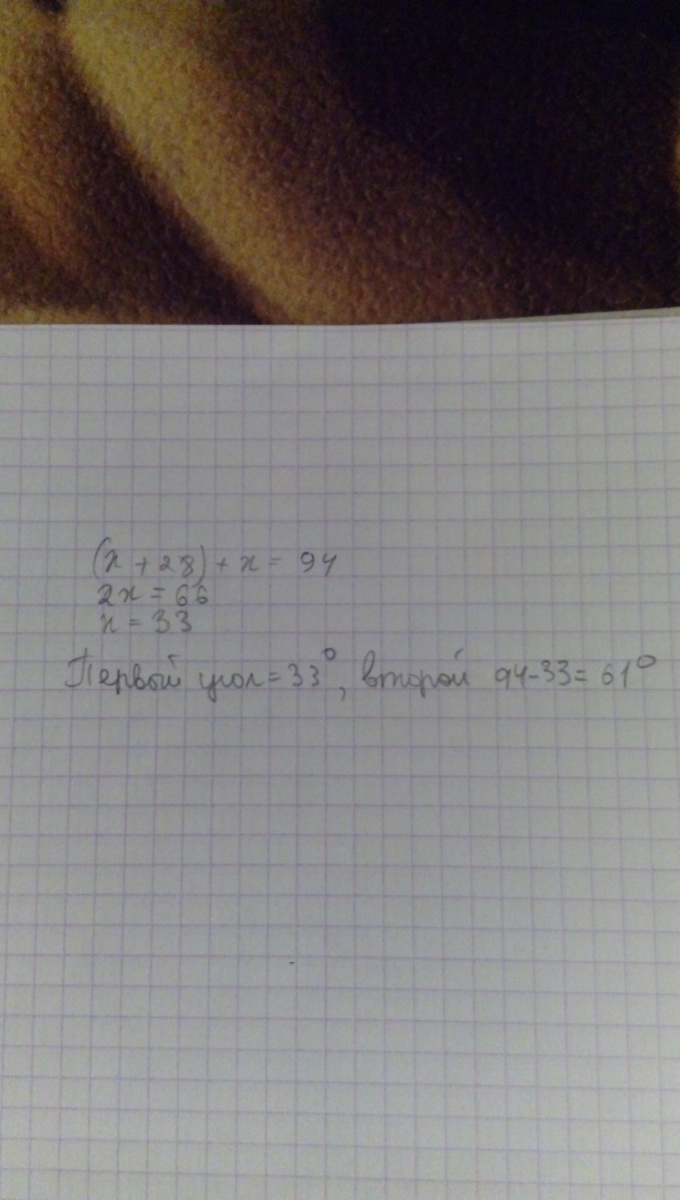 (x + 28) + x = 94
2x = 66
x = 33
Первый угол = 33°, второй 94-33= 61°